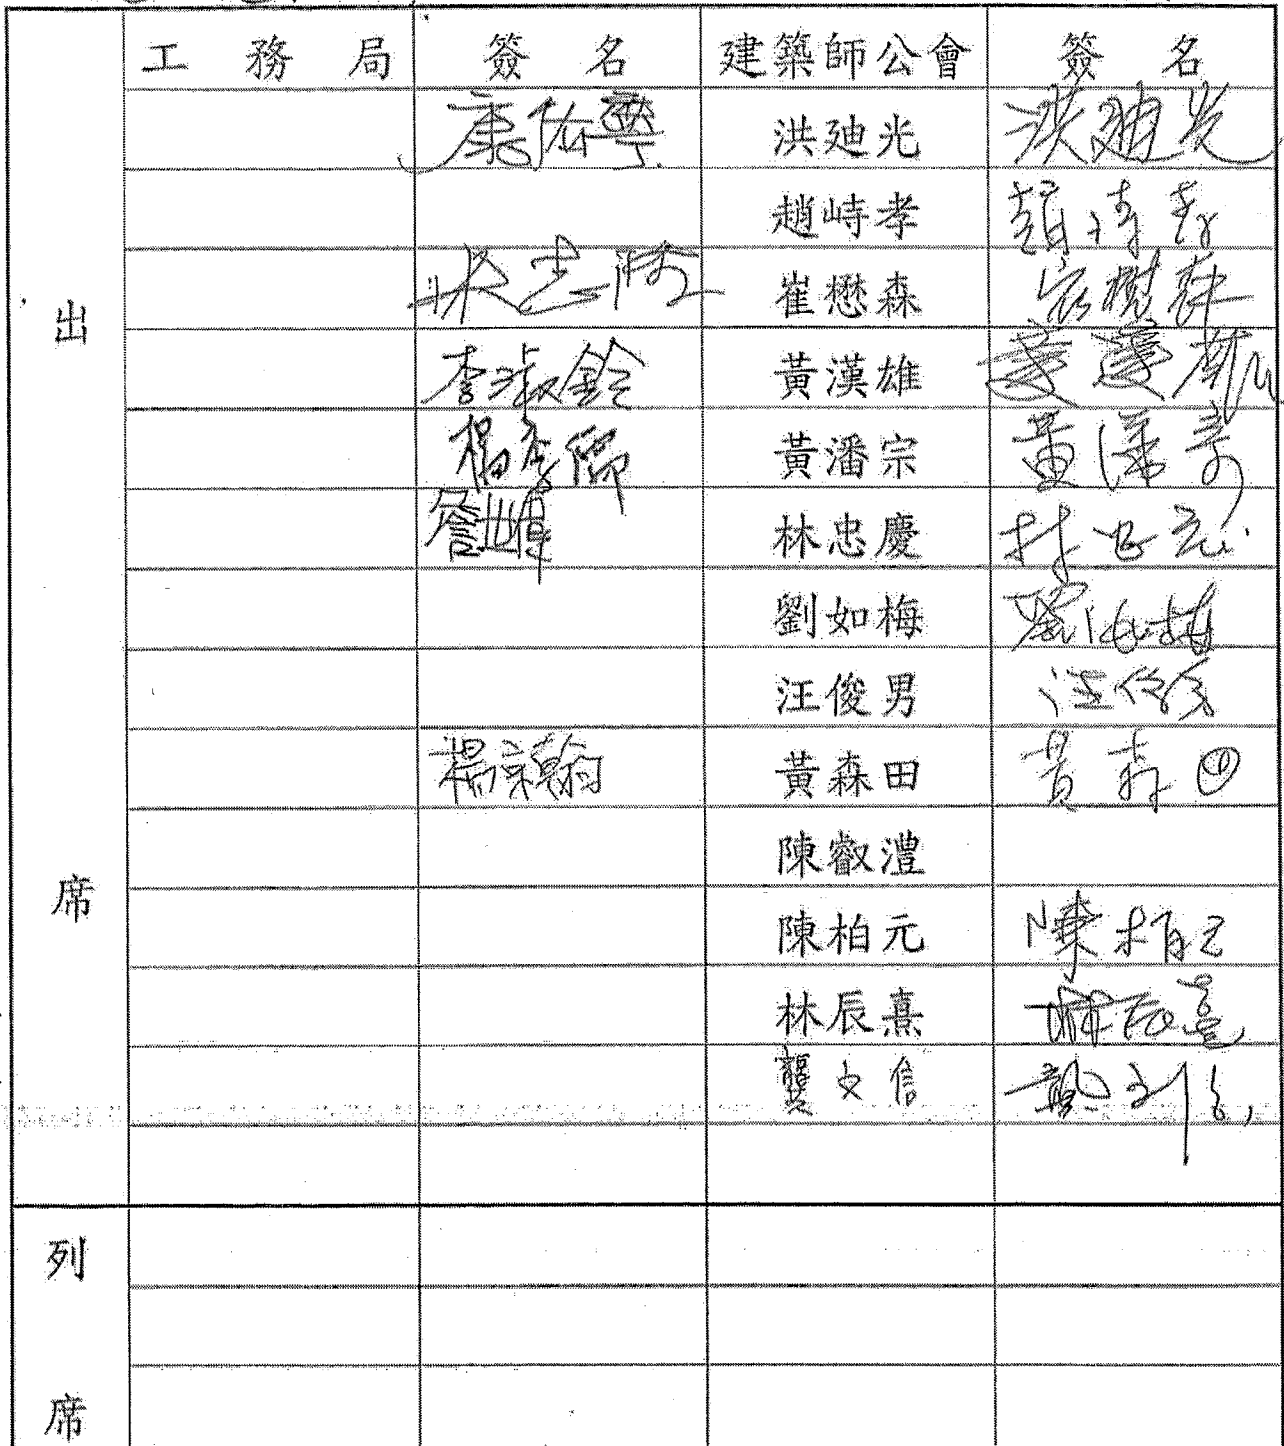 工務局 簽名 建築師公會 簽名
康佑寧 洪廸光 洪廸光
趙峙孝 趙峙孝
崔懋森 崔懋森
李淑鈴 黃漢雄 黃漢雄
黃潘宗 黃潘宗
林忠慶 林忠慶
劉如梅 劉如梅
汪俊男 汪俊男
楊宗翰 黃森田 黃森田
陳叡澧
陳柏元 陳柏元
林辰熹 林辰熹
龔文信 龔文信
出席
列席